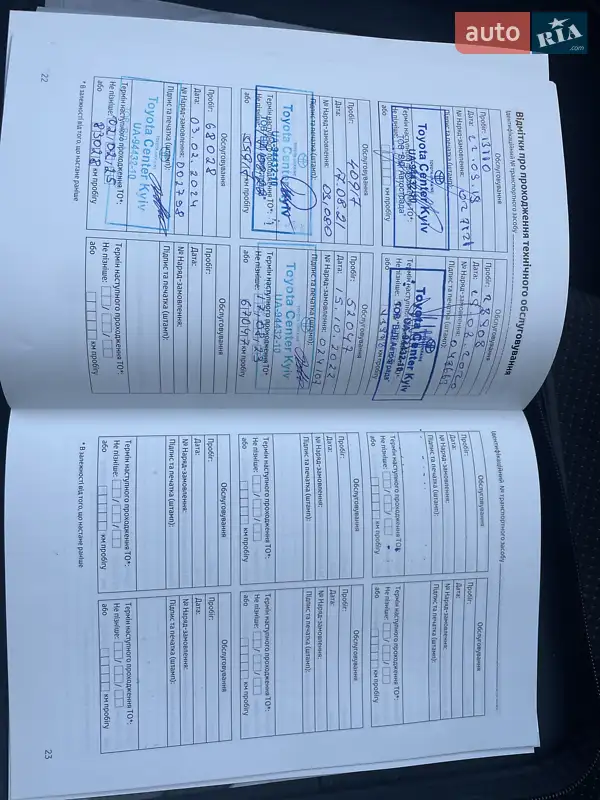 auto
RIA
.com
Відмітки про проходження технічного обслуговування
(ідентифікаційний № транспортного засобу
Обслуговування
Пробіг: 13110
Дата:
№ Наряд-замовлення:
Підпис та печатка (штамп):
Toyota Center Kyiv
UA-94432-10
ТОВ "ВіДі Автострада"
Термін наступного проходження ТО*:
Не пізніше:
або
км пробігу
Обслуговування
Пробіг: 28908
Дата:
№ Наряд-замовлення:
Підпис та печатка (штамп):
Toyota Center Kyiv
UA-94432-10
ТОВ "ВіДі Автострада"
Термін наступного проходження ТО*:
Не пізніше:
або
км пробігу
Обслуговування
Пробіг: 40917
Дата: 17.08.21
№ Наряд-замовлення: 03,080
Підпис та печатка (штамп):
Toyota Center Kyiv
UA-94432-10
Термін наступного проходження ТО*:
Не пізніше:
або
км пробігу
Обслуговування
Пробіг: 52047
Дата:
№ Наряд-замовлення:
Підпис та печатка (штамп):
Toyota Center Kyiv
UA-94432-10
Термін наступного проходження ТО*:
Не пізніше:
або 67047 км пробігу
Обслуговування
Пробіг: 68028
Дата: 03.02.2024
№ Наряд-замовлення: 002798
Підпис та печатка (штамп):
Toyota Center Kyiv
UA-94432-10
Термін наступного проходження ТО*:
Не пізніше: 02/02/25
або 83028 км пробігу
Обслуговування
Пробіг:
Дата:
№ Наряд-замовлення:
Підпис та печатка (штамп):
Термін наступного проходження ТО*:
Не пізніше:
або
км пробігу
* В залежності від того, що настане раніше
22
(ідентифікаційний № транспортного засобу
Обслуговування
Пробіг:
Дата:
№ Наряд-замовлення:
Підпис та печатка (штамп):
Термін наступного проходження ТО*:
Не пізніше:
або
км пробігу
Обслуговування
Пробіг:
Дата:
№ Наряд-замовлення:
Підпис та печатка (штамп):
Термін наступного проходження ТО*:
Не пізніше:
або
км пробігу
Обслуговування
Пробіг:
Дата:
№ Наряд-замовлення:
Підпис та печатка (штамп):
Термін наступного проходження ТО*:
Не пізніше:
або
км пробігу
Обслуговування
Пробіг:
Дата:
№ Наряд-замовлення:
Підпис та печатка (штамп):
Термін наступного проходження ТО*:
Не пізніше:
або
км пробігу
Обслуговування
Пробіг:
Дата:
№ Наряд-замовлення:
Підпис та печатка (штамп):
Термін наступного проходження ТО*:
Не пізніше:
або
км пробігу
Обслуговування
Пробіг:
Дата:
№ Наряд-замовлення:
Підпис та печатка (штамп):
Термін наступного проходження ТО*:
Не пізніше:
або
км пробігу
* В залежності від того, що настане раніше
23